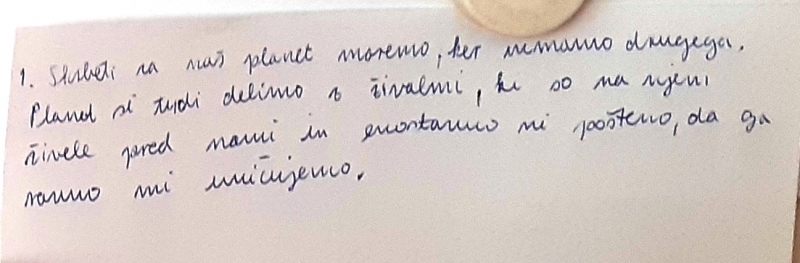 1. Skrbeti za naš planet moramo, ker nimamo drugega.
Planet si tudi delimo z živalmi, ki so na njeni
živele pred nami in enostavno ni pošteno, da ga
samo mi uničujemo.